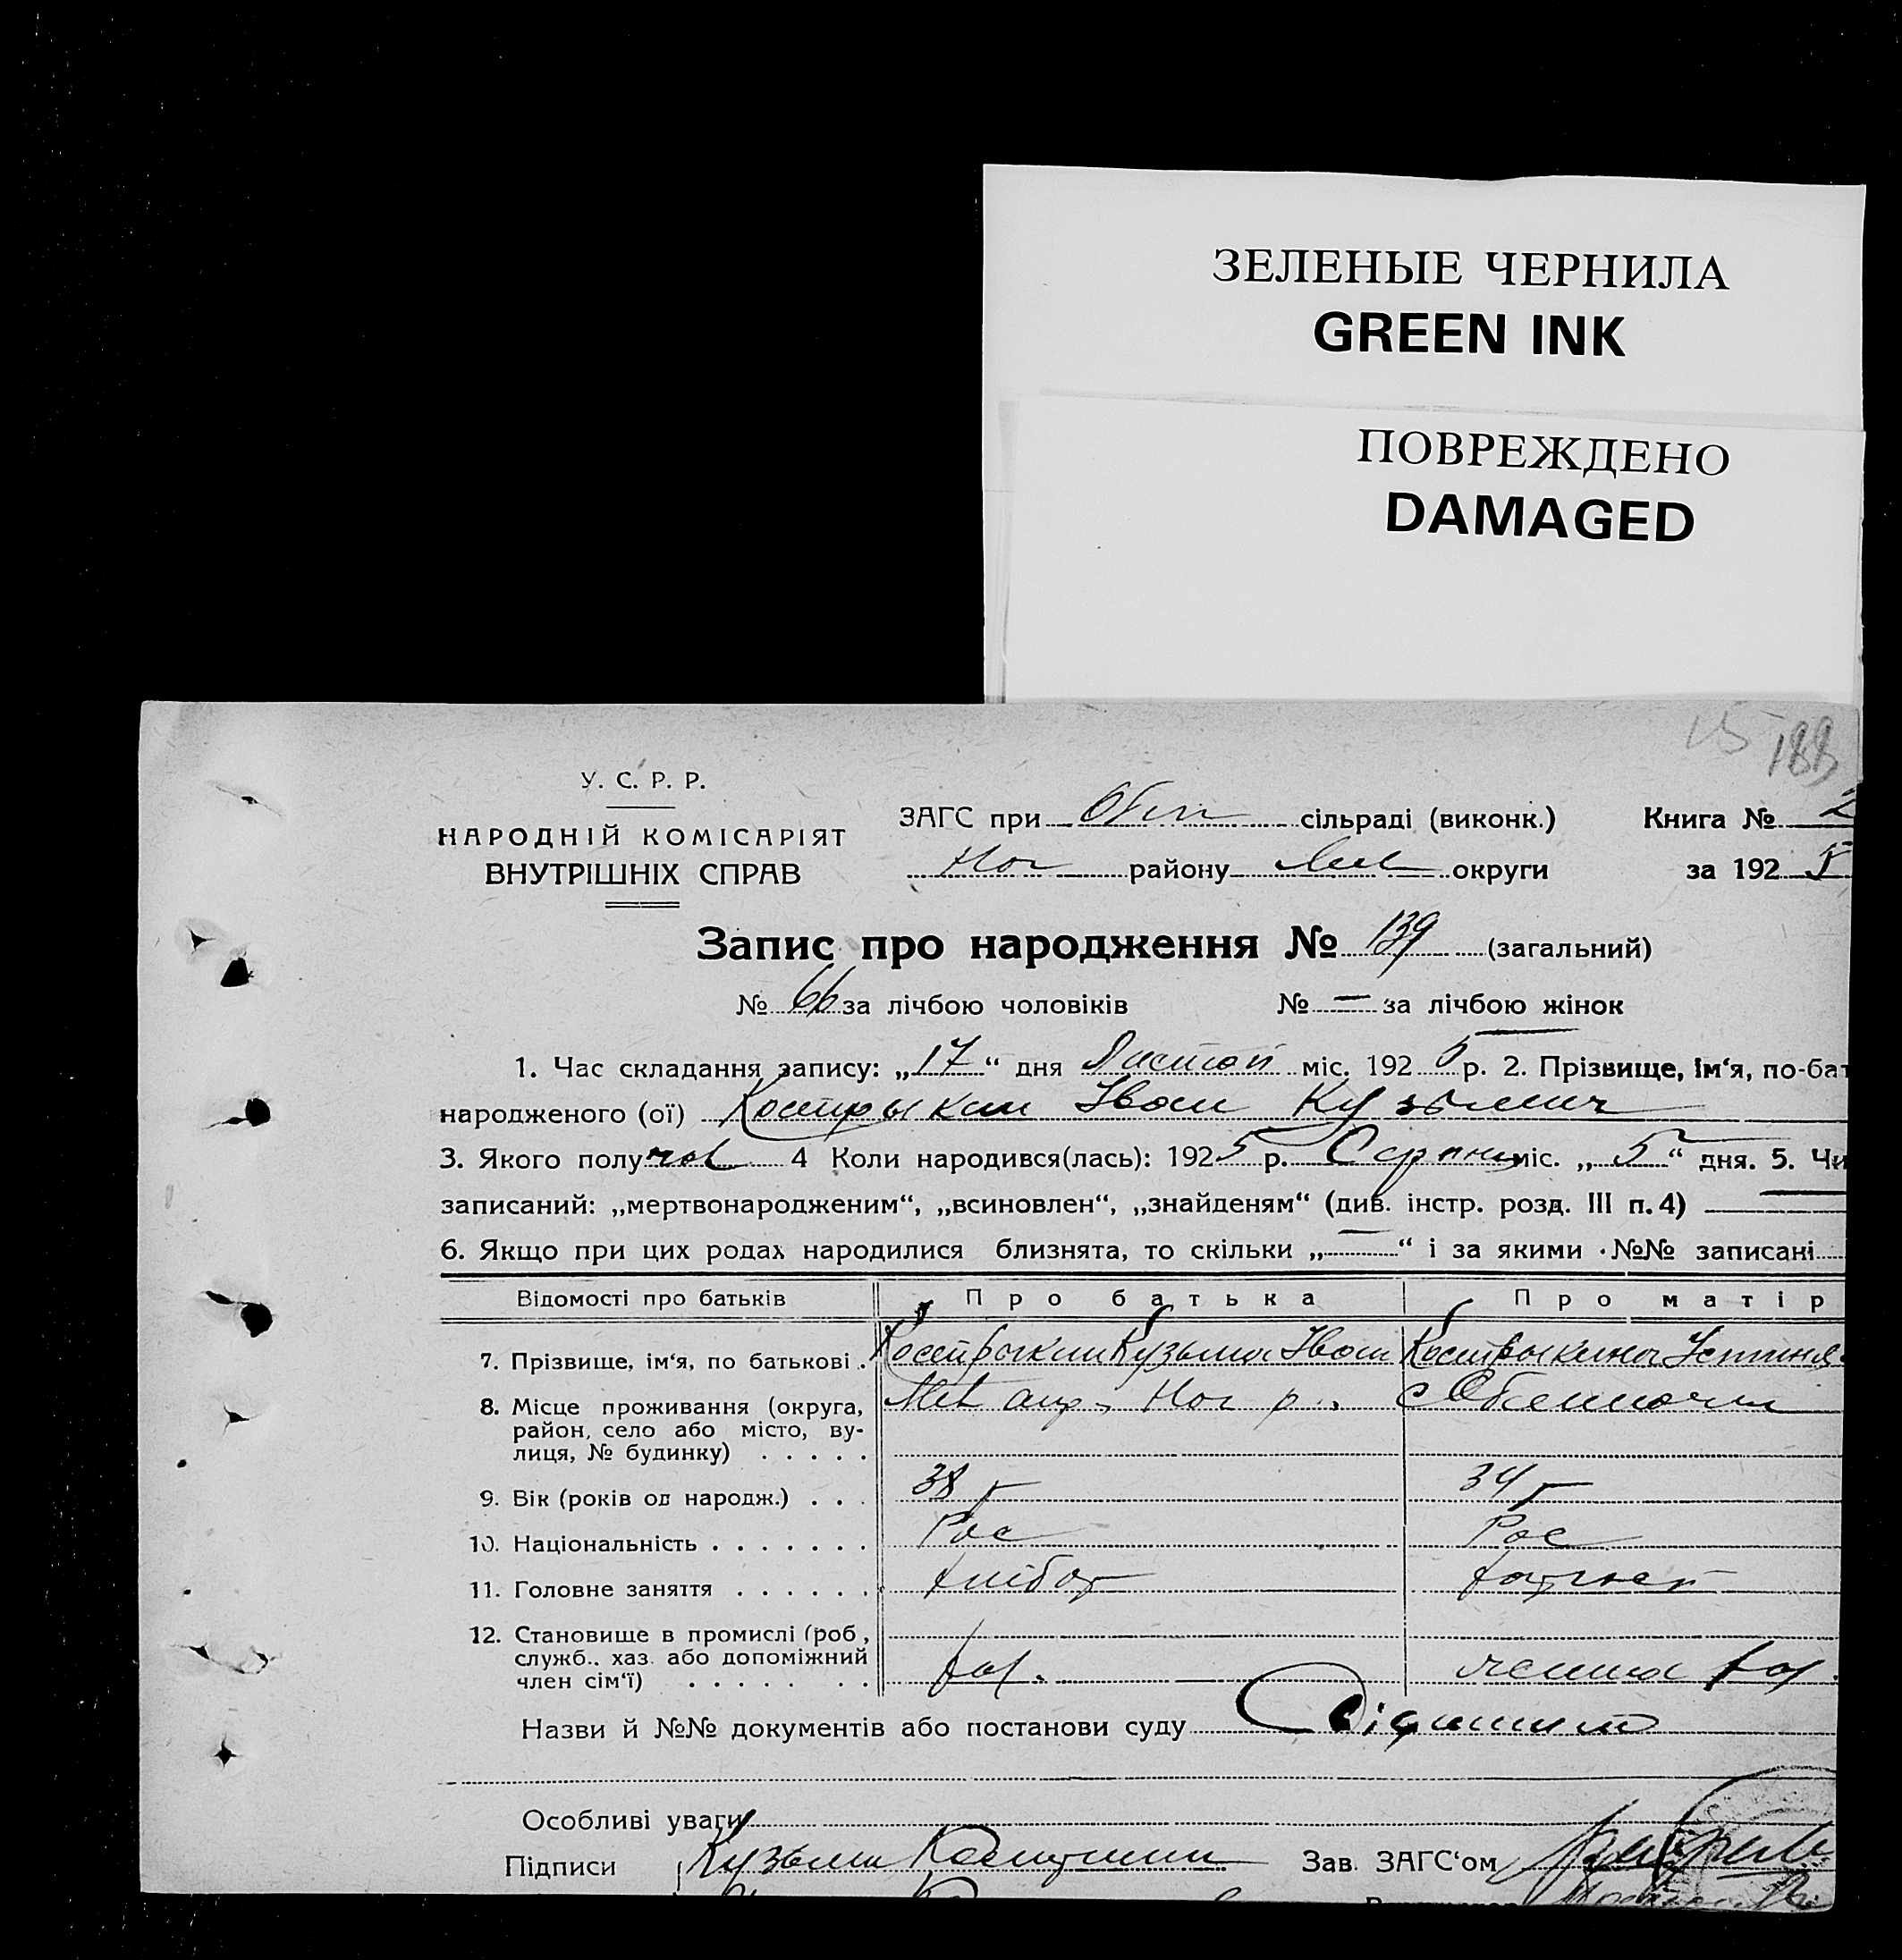 ЗЕЛЕНЫЕ ЧЕРНИЛА
GREEN INK
ПОВРЕЖДЕНО
DAMAGED
15 188
У. С. Р. Р.
НАРОДНІЙ КОМІСАРІЯТ
ВНУТРІШНІХ СПРАВ
ЗАГС при сільраді (виконк.) Книга № 2
Ног району округи за 1925
Запис про народження № 139 (загальний)
№ 66 за лічбою чоловіків № — за лічбою жінок
1. Час складання запису: „17“ дня Листоп міс. 1925 р. 2. Прізвище, ім‘я, по-бат
народженого (ої) Кострыкин Иван Кузьмич
3. Якого полу чол 4 Коли народився(лась): 1925 р. Серпня міс. „5“ дня. 5. Чи
записаний: „мертвонародженим“, „всиновлен“, „знайденям“ (див. інстр. розд. III п. 4) —
6. Якщо при цих родах народилися близнята, то скільки „—“ і за якими №№ записані
Відомості про батьків Про батька Про матір
7. Прізвище, ім‘я, по батькові . Кострыкин Кузьма Иван Кострыкина Устиня
8. Місце проживання (округа, Мел окр., Ног р.,
район, село або місто, ву-
лиця, № будинку) . . . . .
9. Вік (років од народж.) . . . 38 р 34 р
10. Національність . . . . . . . Рос Рос
11. Головне заняття . . . . . . хлібор
12. Становище в промислі (роб,
служб., хаз. або допоміжний
член сім‘ї) . . . . . . . хаз. члена хаз.
Назви й №№ документів або постанови суду
Особливі уваги
Підписи Кузьма Зав. ЗАГС‘ом